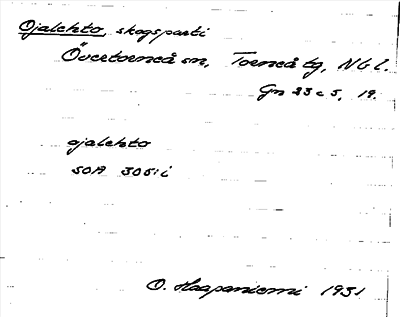 Ojalehto, skogsparti
Övertorneå sn, Torneå tg, Nbl.
Gn 23 c 5, 19.
ojalehto
SOA 305: i
O. Haapaniemi 1931